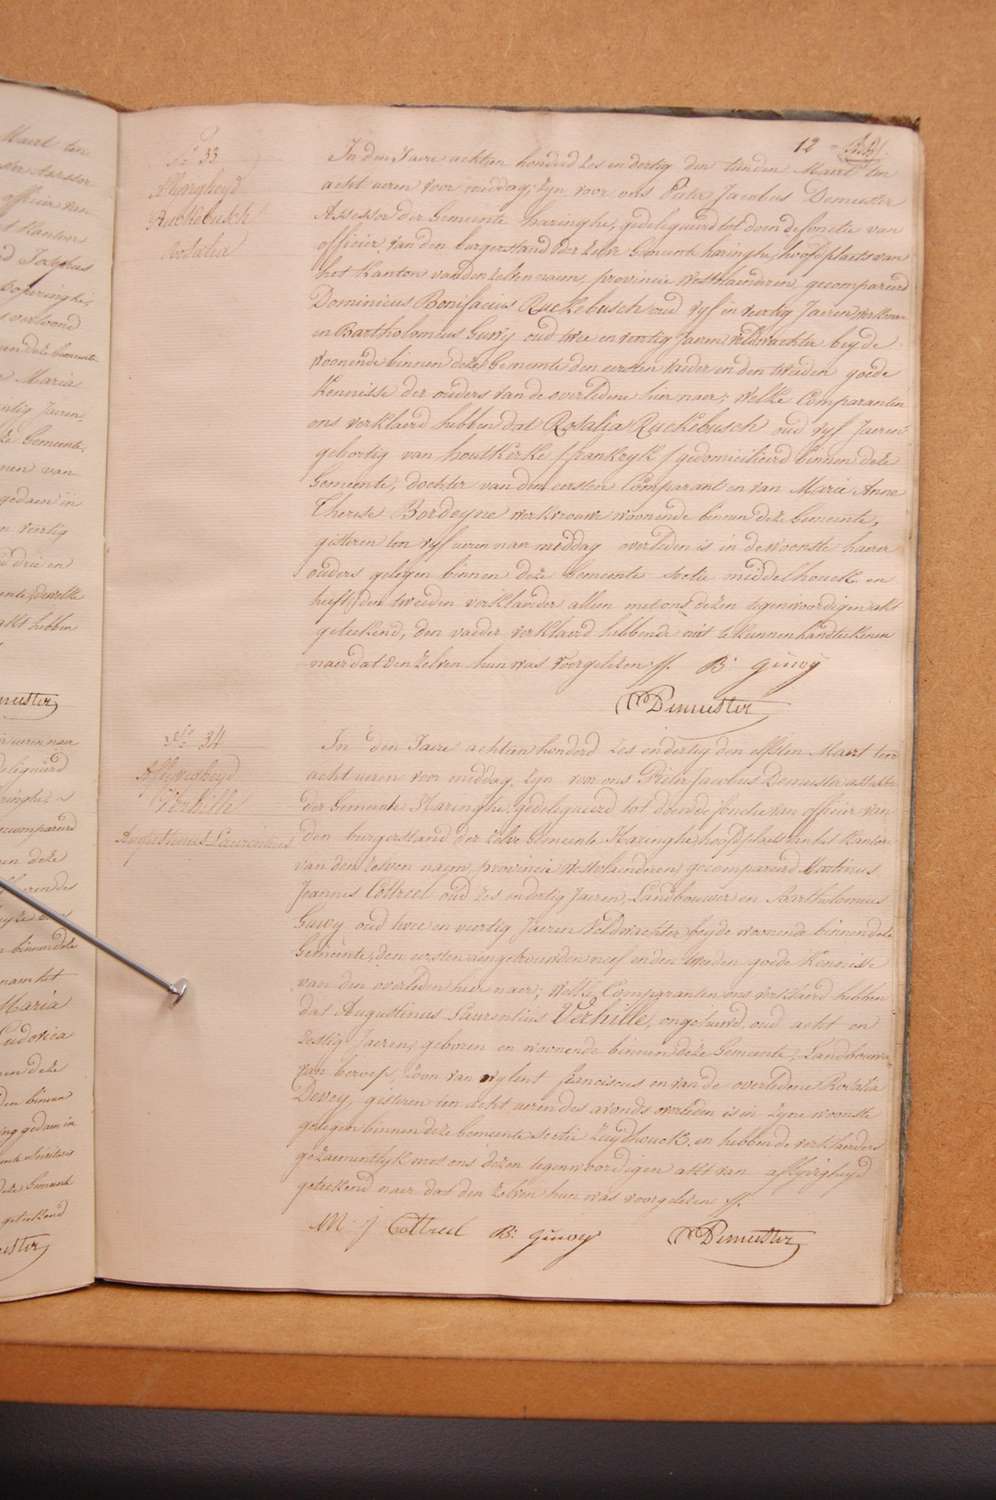 Maert ten
officier van
t Kanton
Josephus
poperinghe
deze Gemeente
Maria
Jaeren
Gemeente
nen van
gedaen in
veertig
drie en
akt hebben
Demeester
Maria
Ludovica
deze
binnen
gedaen in
Gemeente
geteekend
12
N° 33
Aflyvigheyd
Ruckebusch
Rosalia
In den Jaere achtien honderd zes en dertig den tienden Maert ten
acht uren voor middag, zyn voor ons Pieter Jacobus Demeester
Assessor der Gemeente haringhe, gedelegueerd tot doen de fonctie van
officier van den burgerstand der zelve Gemeente haringhe, hoofdplaets van
het Kanton van den zelven naem, provincie Westvlaenderen, gecompareerd
Dominicus Bonifacius Ruckebusch oud vyf en veertig Jaeren, werkman
en Bartholomeus Guwy oud twee en veertig Jaeren veldwachter beyde
woonende binnen deze Gemeente den eersten vader en den tweeden goede
Kennisse der ouders van de overledene hier naer; Welke Comparanten
ons verklaerd hebben dat Rosalia Ruckebusch oud vyf Jaeren
gebortig van houtkerke (frankryk) gedomicilieerd binnen deze
Gemeente, dochter van den eersten Comparant en van Marie Anne
Therese Bordeyne werkvrouw woonende binnen deze Gemeente,
gisteren ten vyf uren naer middag overleden is in de wooninge haerer
ouders gelegen binnen deze Gemeente sectie middelhouck en
heeft den tweeden verklaerder alleen met ons dezen tegenwoordigen akt
geteekend, den vader verklaerd hebbende niet te kunnen handteekenen
naer dat den zelven hun was voorgelezen //. B: guwy
Demeester
N° 34
Aflyvigheyd
Verhille
Augustinus Laurentius
In den Jaere achtien honderd zes en dertig den elfsten Maert ten
acht uren voor middag, zyn voor ons Pieter Jacobus Demeester assessor
der Gemeente Haringhe, gedelegueerd tot doen de fonctie van officier van
den burgerstand der zelve Gemeente Haringhe, hoofdplaets van het Kanton
van den zelven naem, provincie Westvlaenderen, gecompareerd Martinus
Joannes Cottreel oud zes en dertig Jaeren, Landbouwer en Bartholomeus
Guwy oud twee en veertig Jaeren Veldwachter, beyde woonende binnen deze
Gemeente, den eersten aengetrouwden neef en den tweeden goede Kennisse
van den overleden hier naer; Welke Comparanten ons verklaerd hebben
dat Augustinus Laurentius Verhille, ongehuwd, oud acht en
zestig Jaeren, geboren en woonende binnen deze Gemeente, Landbouwer
van beroep, zoon van wylent franciscus en van de overledene Rosalia
Devey, gisteren ten acht uren des avonds overleden is in zyne wooninge
gelegen binnen deze Gemeente sectie Zuydhouck, en hebben de verklaerders
gezamentlyk met ons dezen tegenwoordigen akt van aflyvigheyd
geteekend naer dat den zelven hun was voorgelezen //.
M. j Cottreel B: guwy Demeester